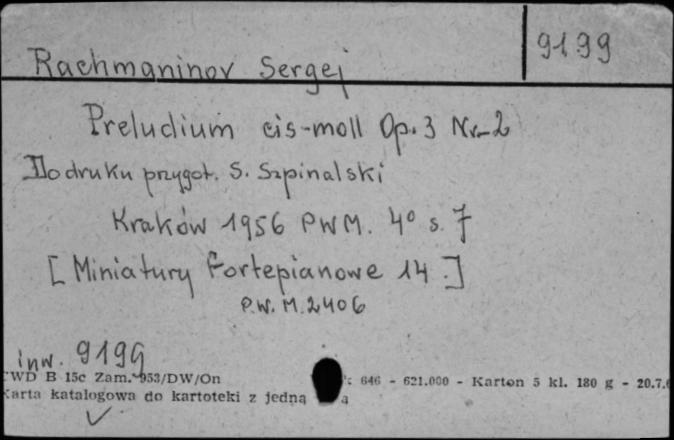 9199
Rachmaninov Sergej
Preludium cis-moll Op. 3 Nr. 2
Do druku przygot. S. Szpinalski
Kraków 1956 PWM. 4° s. 7
[Miniatury Fortepianowe 14.]
P.W.M. 2406
inw. 9199
CWD B 15c Zam. 953/DW/On 646 - 621.000 - Karton 5 kl. 180 g - 20.7.6
Karta katalogowa do kartoteki z jedną